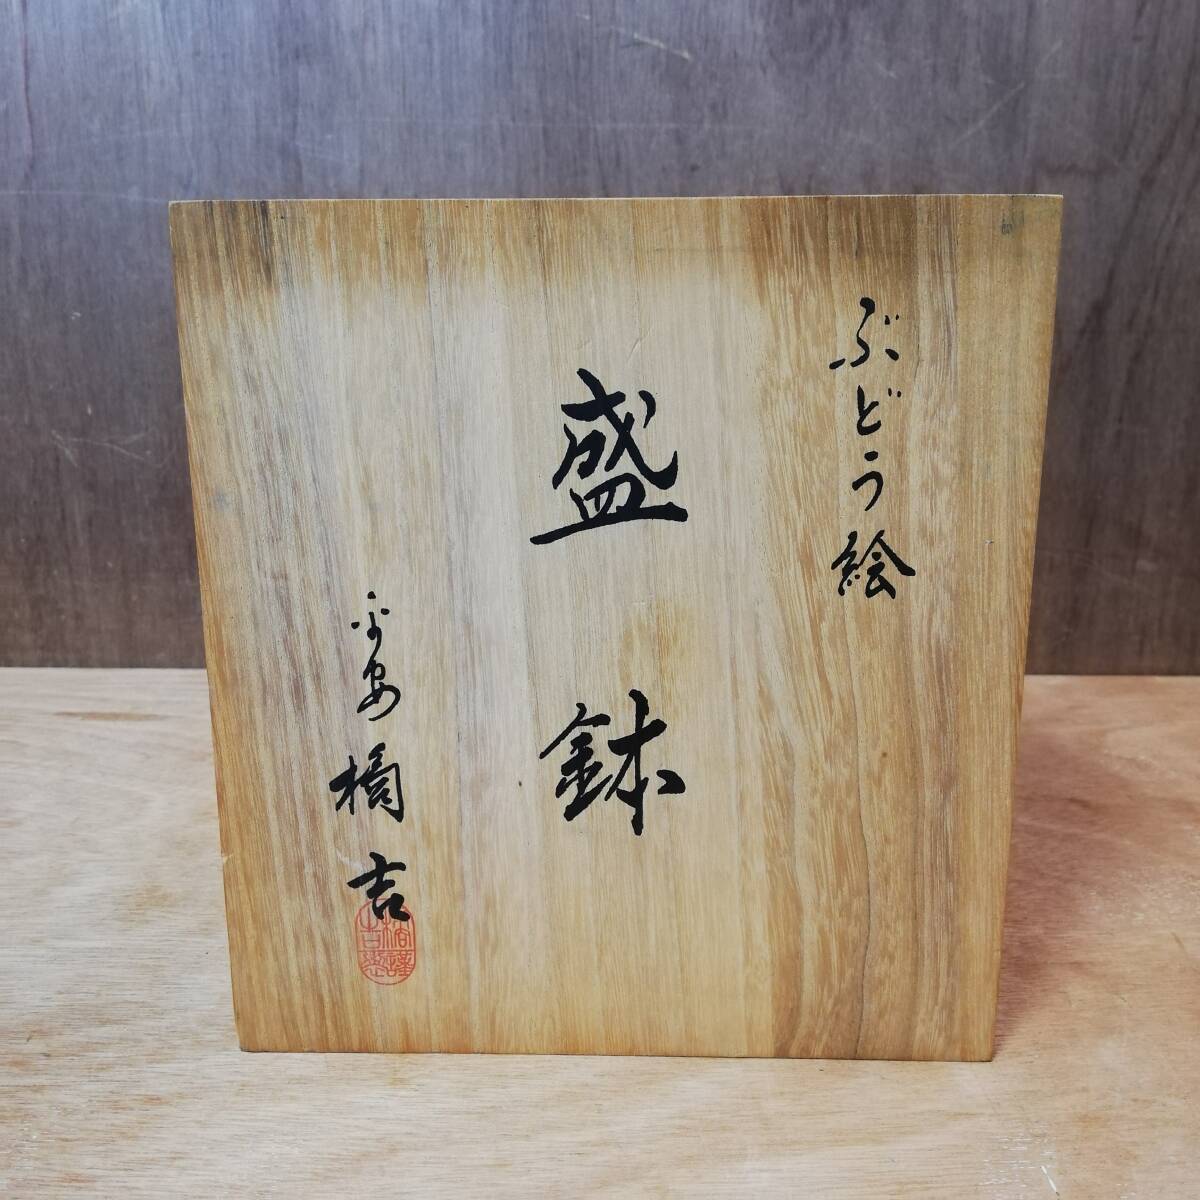 ぶどう絵
盛鉢
平安 橘吉